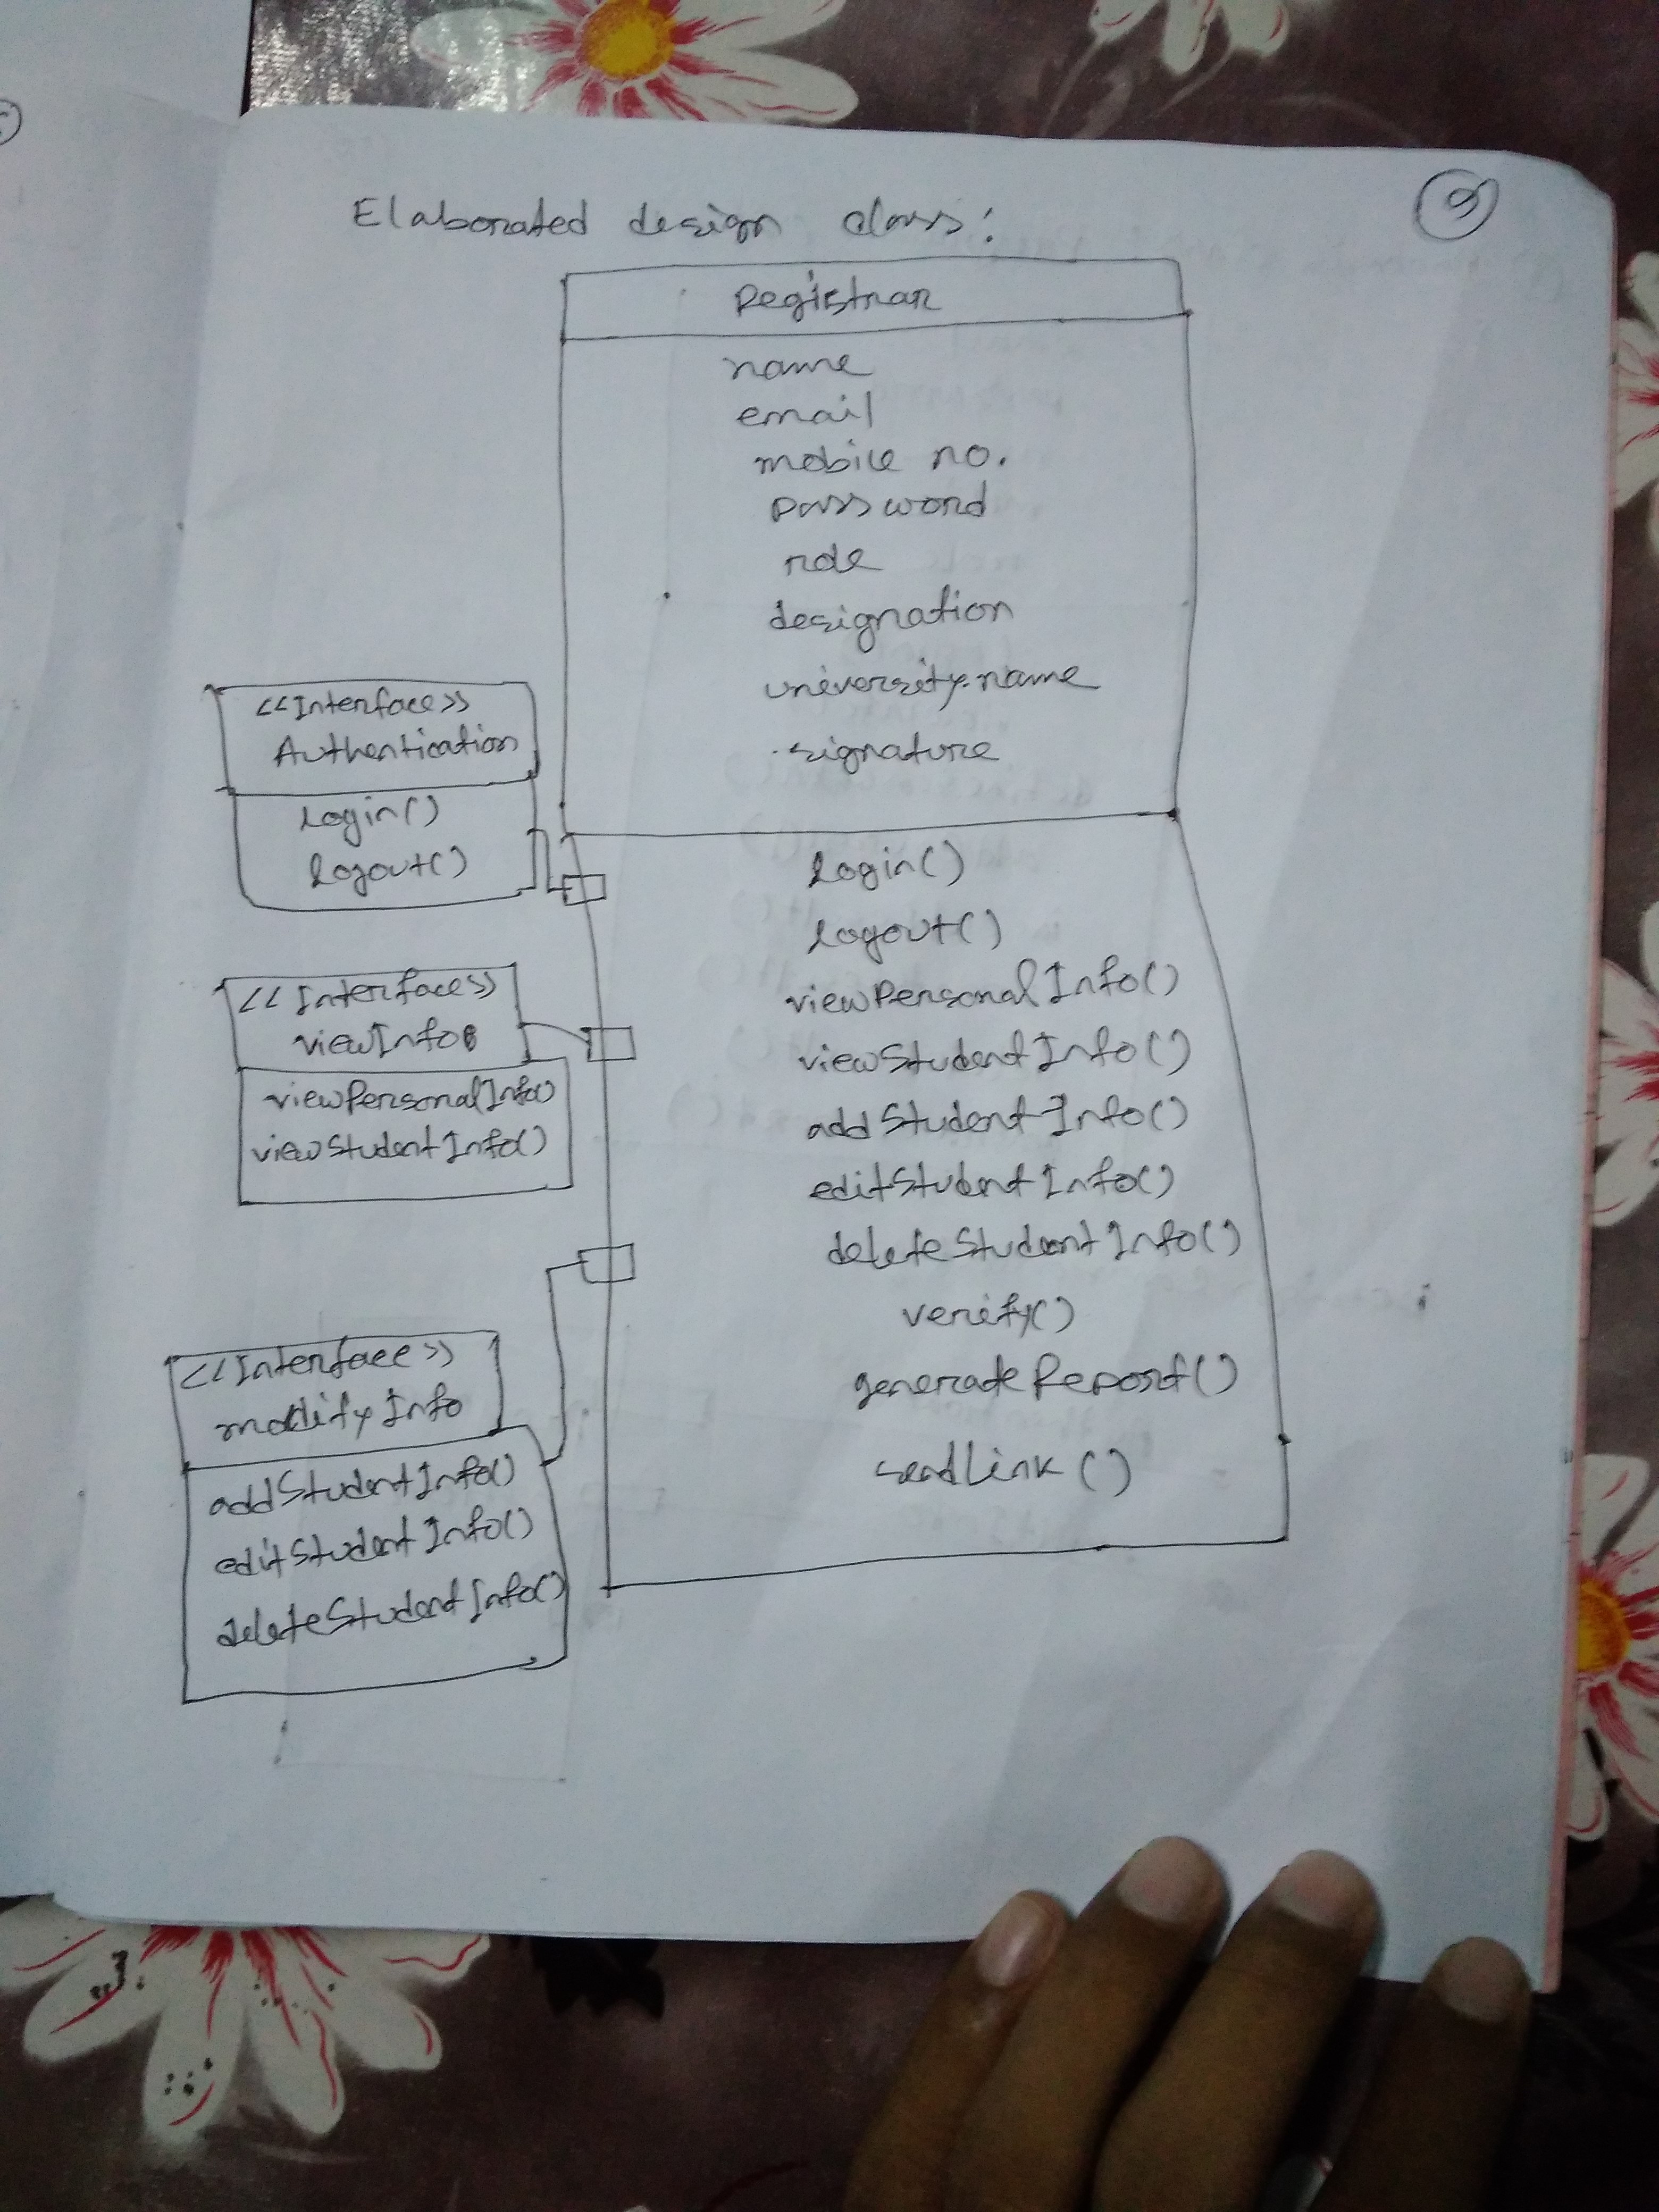 Elaborated design class:
Registrar
name
email
mobile no.
password
role
designation
university.name
signature
login()
logout()
viewPersonalInfo()
viewStudentInfo()
addStudentInfo()
editStudentInfo()
deleteStudentInfo()
verify()
generateReport()
sendLink()
<<Interface>>
Authentication
login()
logout()
<<Interface>>
viewInfo
viewPersonalInfo()
viewStudentInfo()
<<Interface>>
modifyInfo
addStudentInfo()
editStudentInfo()
deleteStudentInfo()